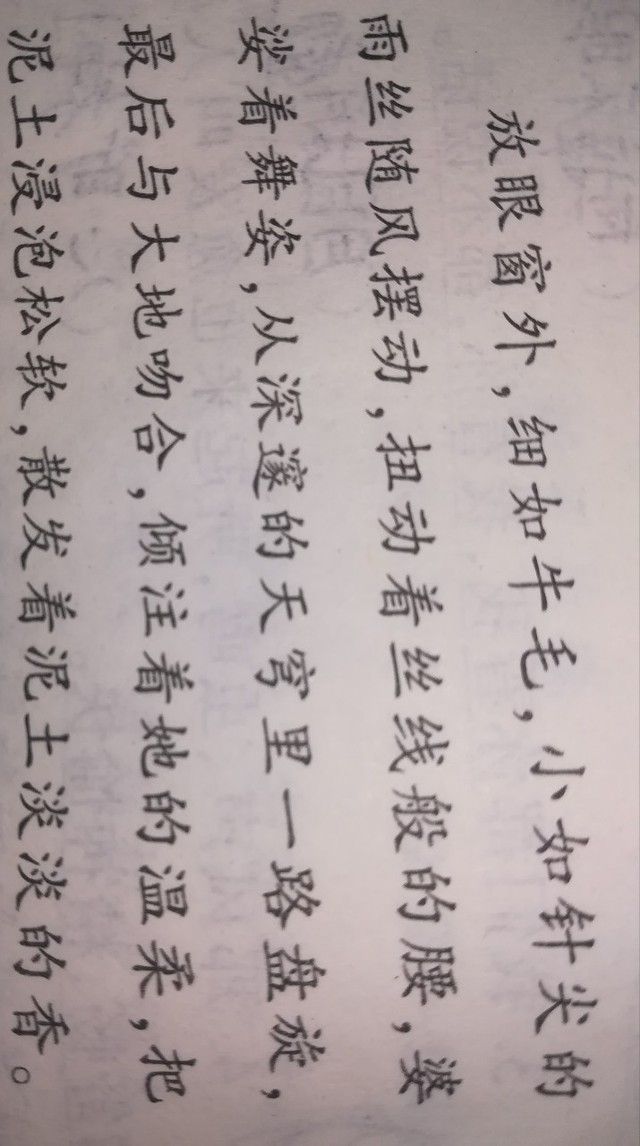 放眼窗外，细如牛毛，小如针尖的
雨丝随风摆动，扭动着丝线般的腰，婆
娑着舞姿，从深邃的天穹里一路盘旋，
最后与大地吻合，倾注着她的温柔，把
泥土浸泡松软，散发着泥土淡淡的香。